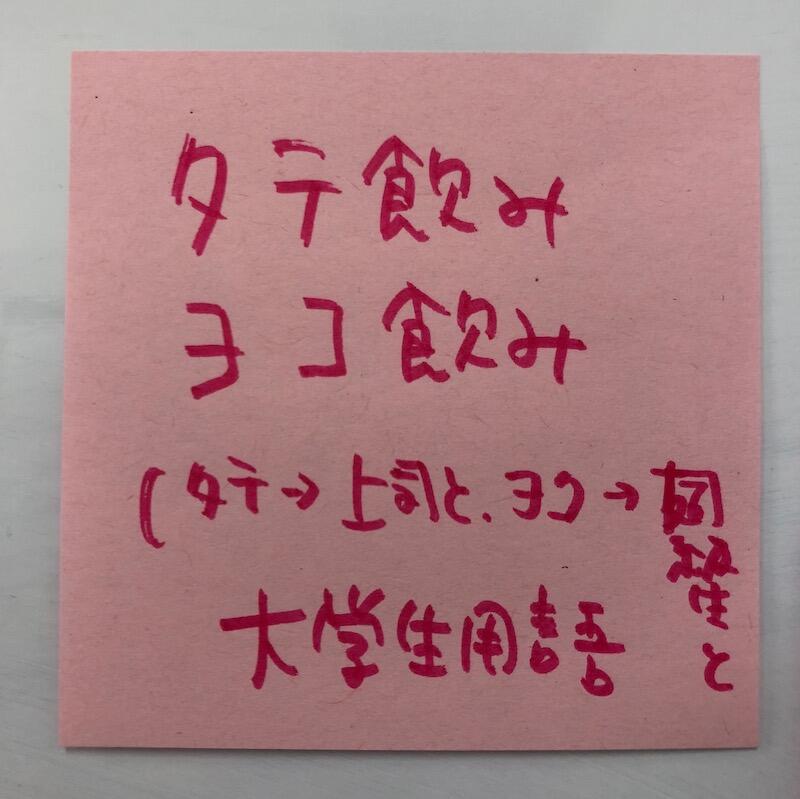 タテ飲み
ヨコ飲み
(タテ→上司と、ヨコ→同級生と
大学生用語